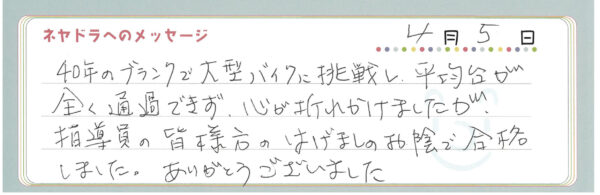 ネヤドラへのメッセージ 4月5日
40年のブランクで大型バイクに挑戦し、平均台が
全く通過できず、心が折れかけましたが
指導員の皆様方のはげましのお陰で合格
しました。ありがとうございました